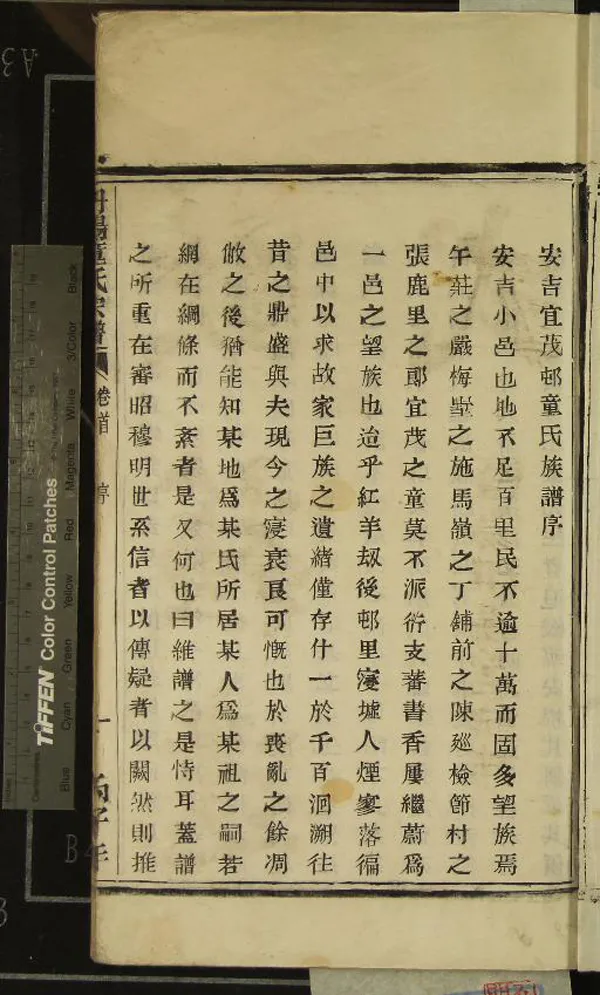 安吉宜茂邨童氏族譜序
安吉小邑也地不足百里民不逾十萬而固多望族焉
午莊之嚴梅墅之施馬嶺之丁鋪前之陳廵檢節村之
張鹿里之郎宜茂之童莫不派衍支蕃書香屢繼蔚爲
一邑之望族也迨乎紅羊刼後邨里寖墟人煙寥落徧
邑中以求故家巨族之遺緒僅存什一於千百洄溯往
昔之鼎盛與夫現今之寖衰良可慨也於喪亂之餘凋
敝之後猶能知某地爲某氏所居某人爲某祖之嗣若
網在綱條而不紊者是又何也曰維譜之是恃耳蓋譜
之所重在審昭穆明世系信者以傳疑者以闕然則推
丹陽童氏宗譜
卷首
序
一
丙子年
TIFFEN Color Control Patches
Blue
Cyan
Green
Yellow
Red
Magenta
White
3/Color
Black
A3
B